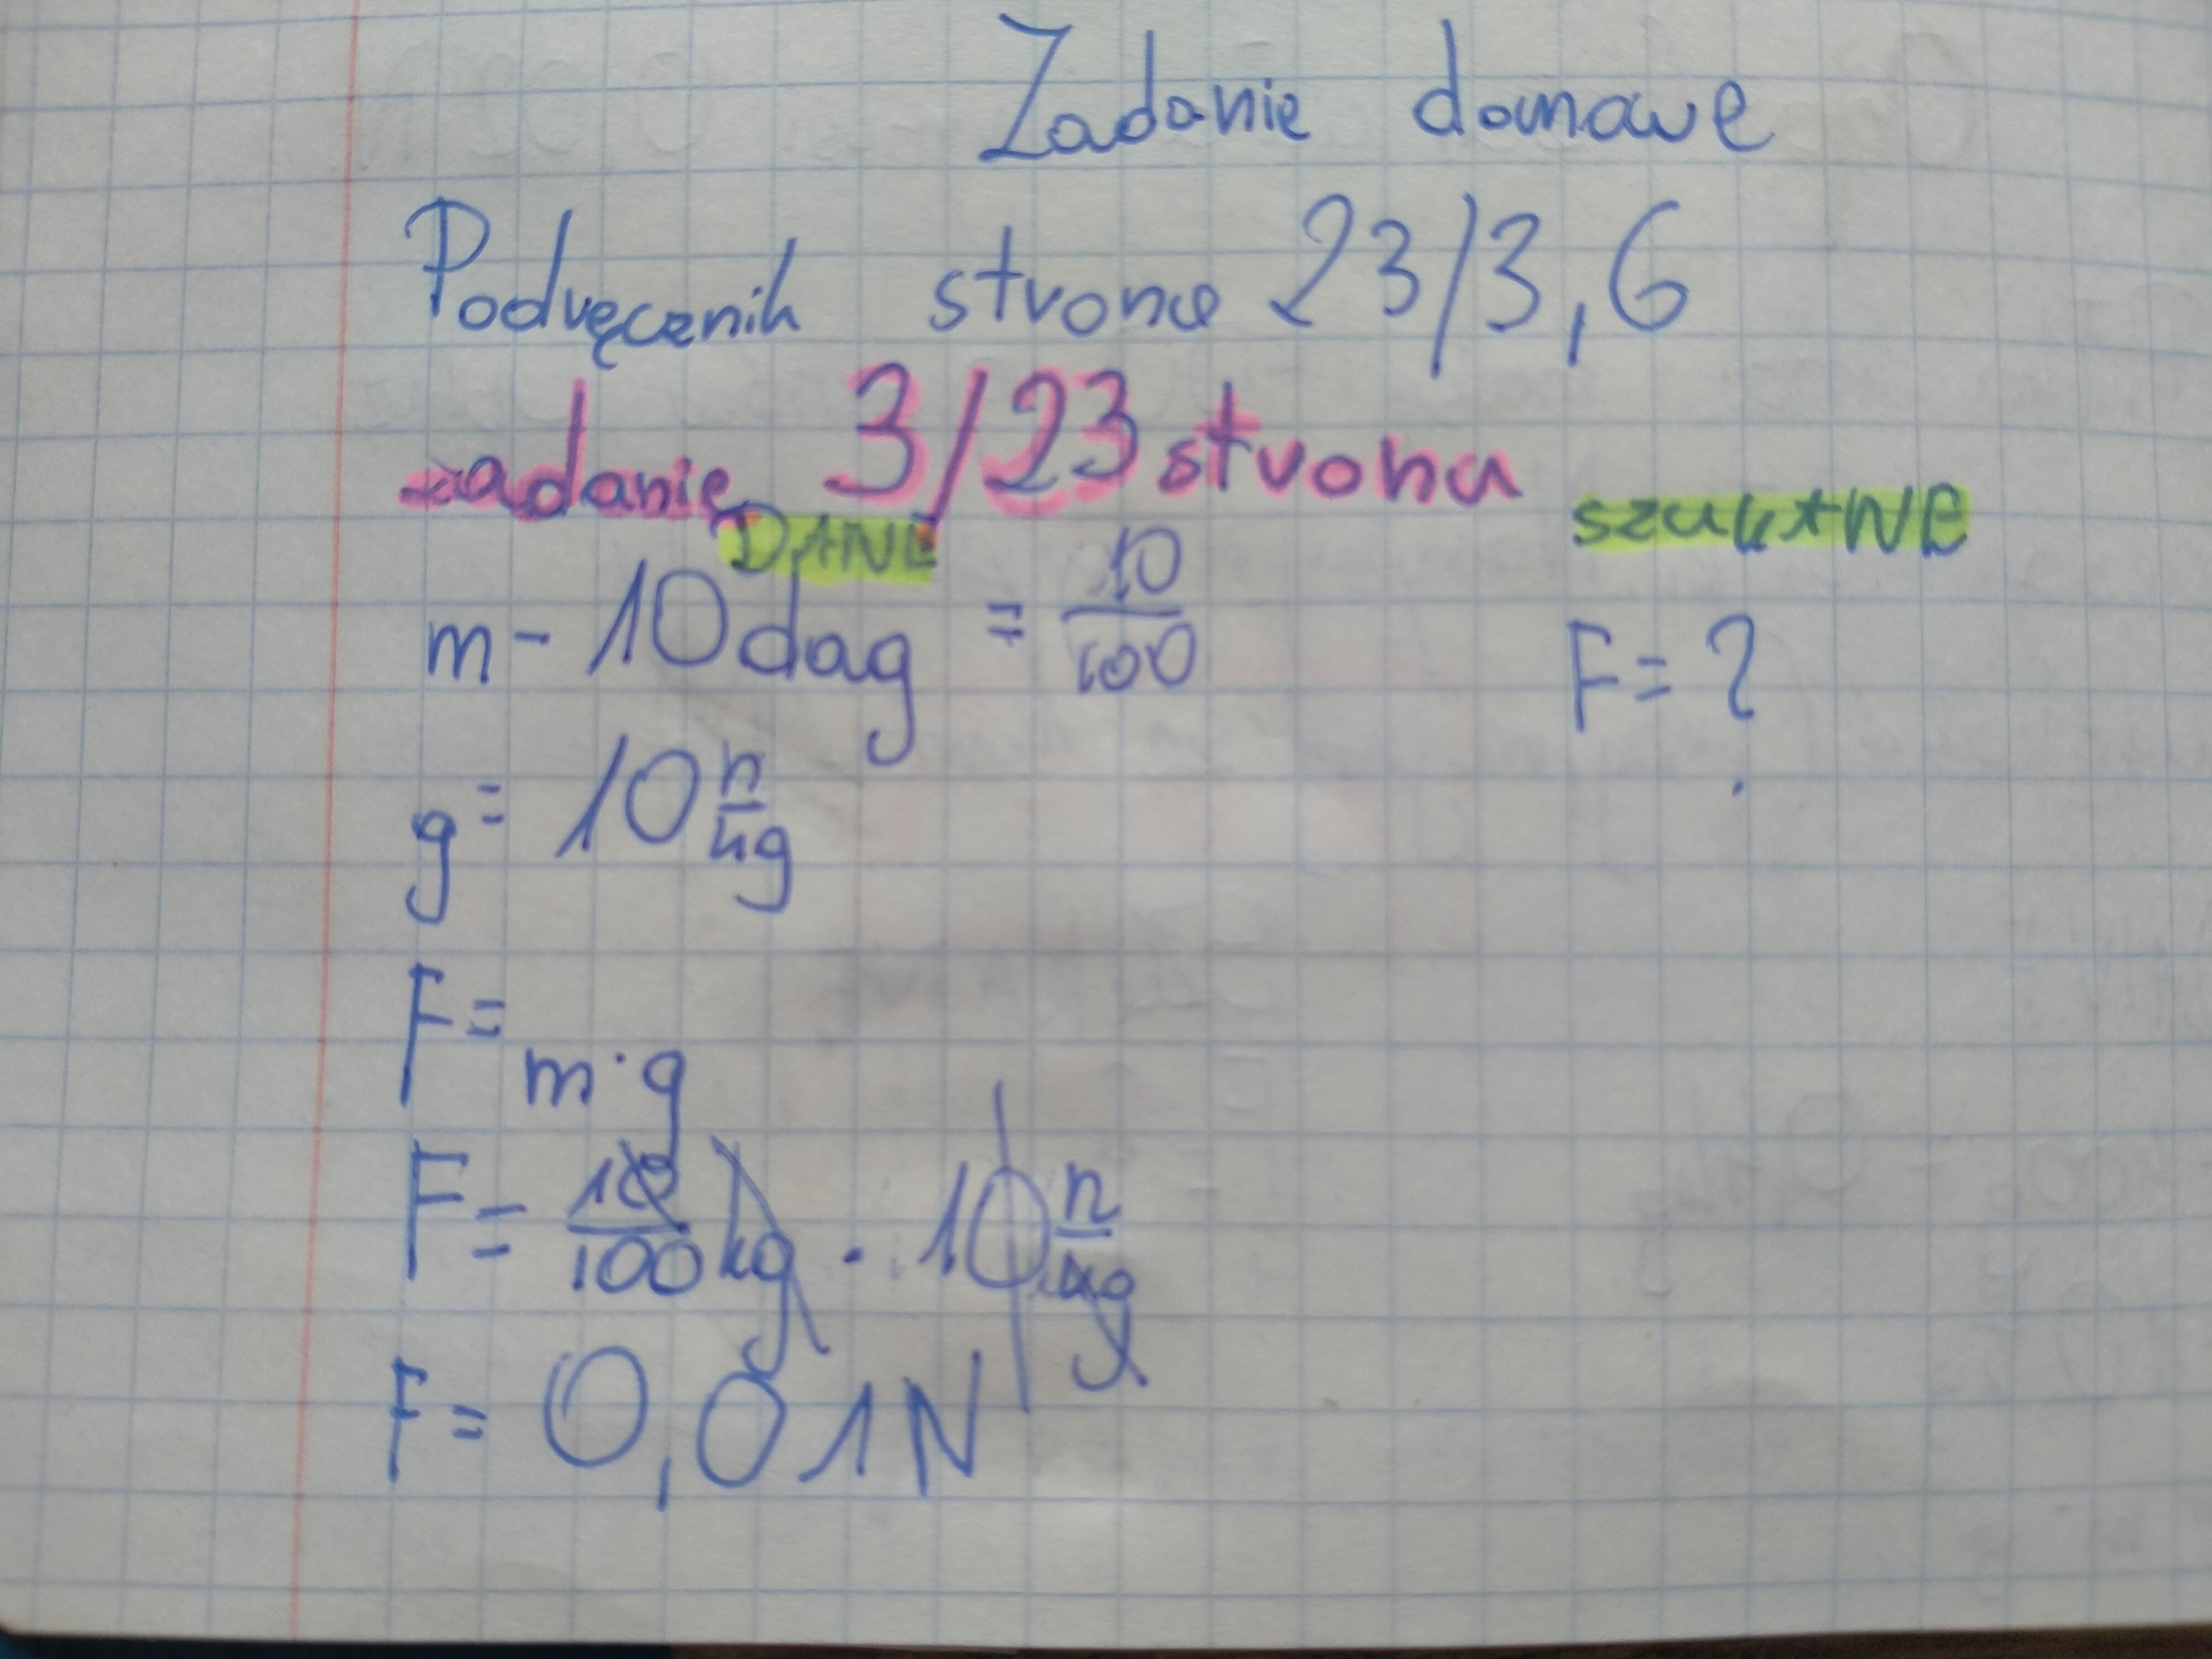 Zadanie domowe
Podręcznik strona 23/3,6
zadanie 3/23 strona
DANE szukANE
m - 10 dag = 10/100 F = ?
g = 10 n/kg
F =
m · g
F = 10/100 kg · 10 n/kg
F = 0,01N